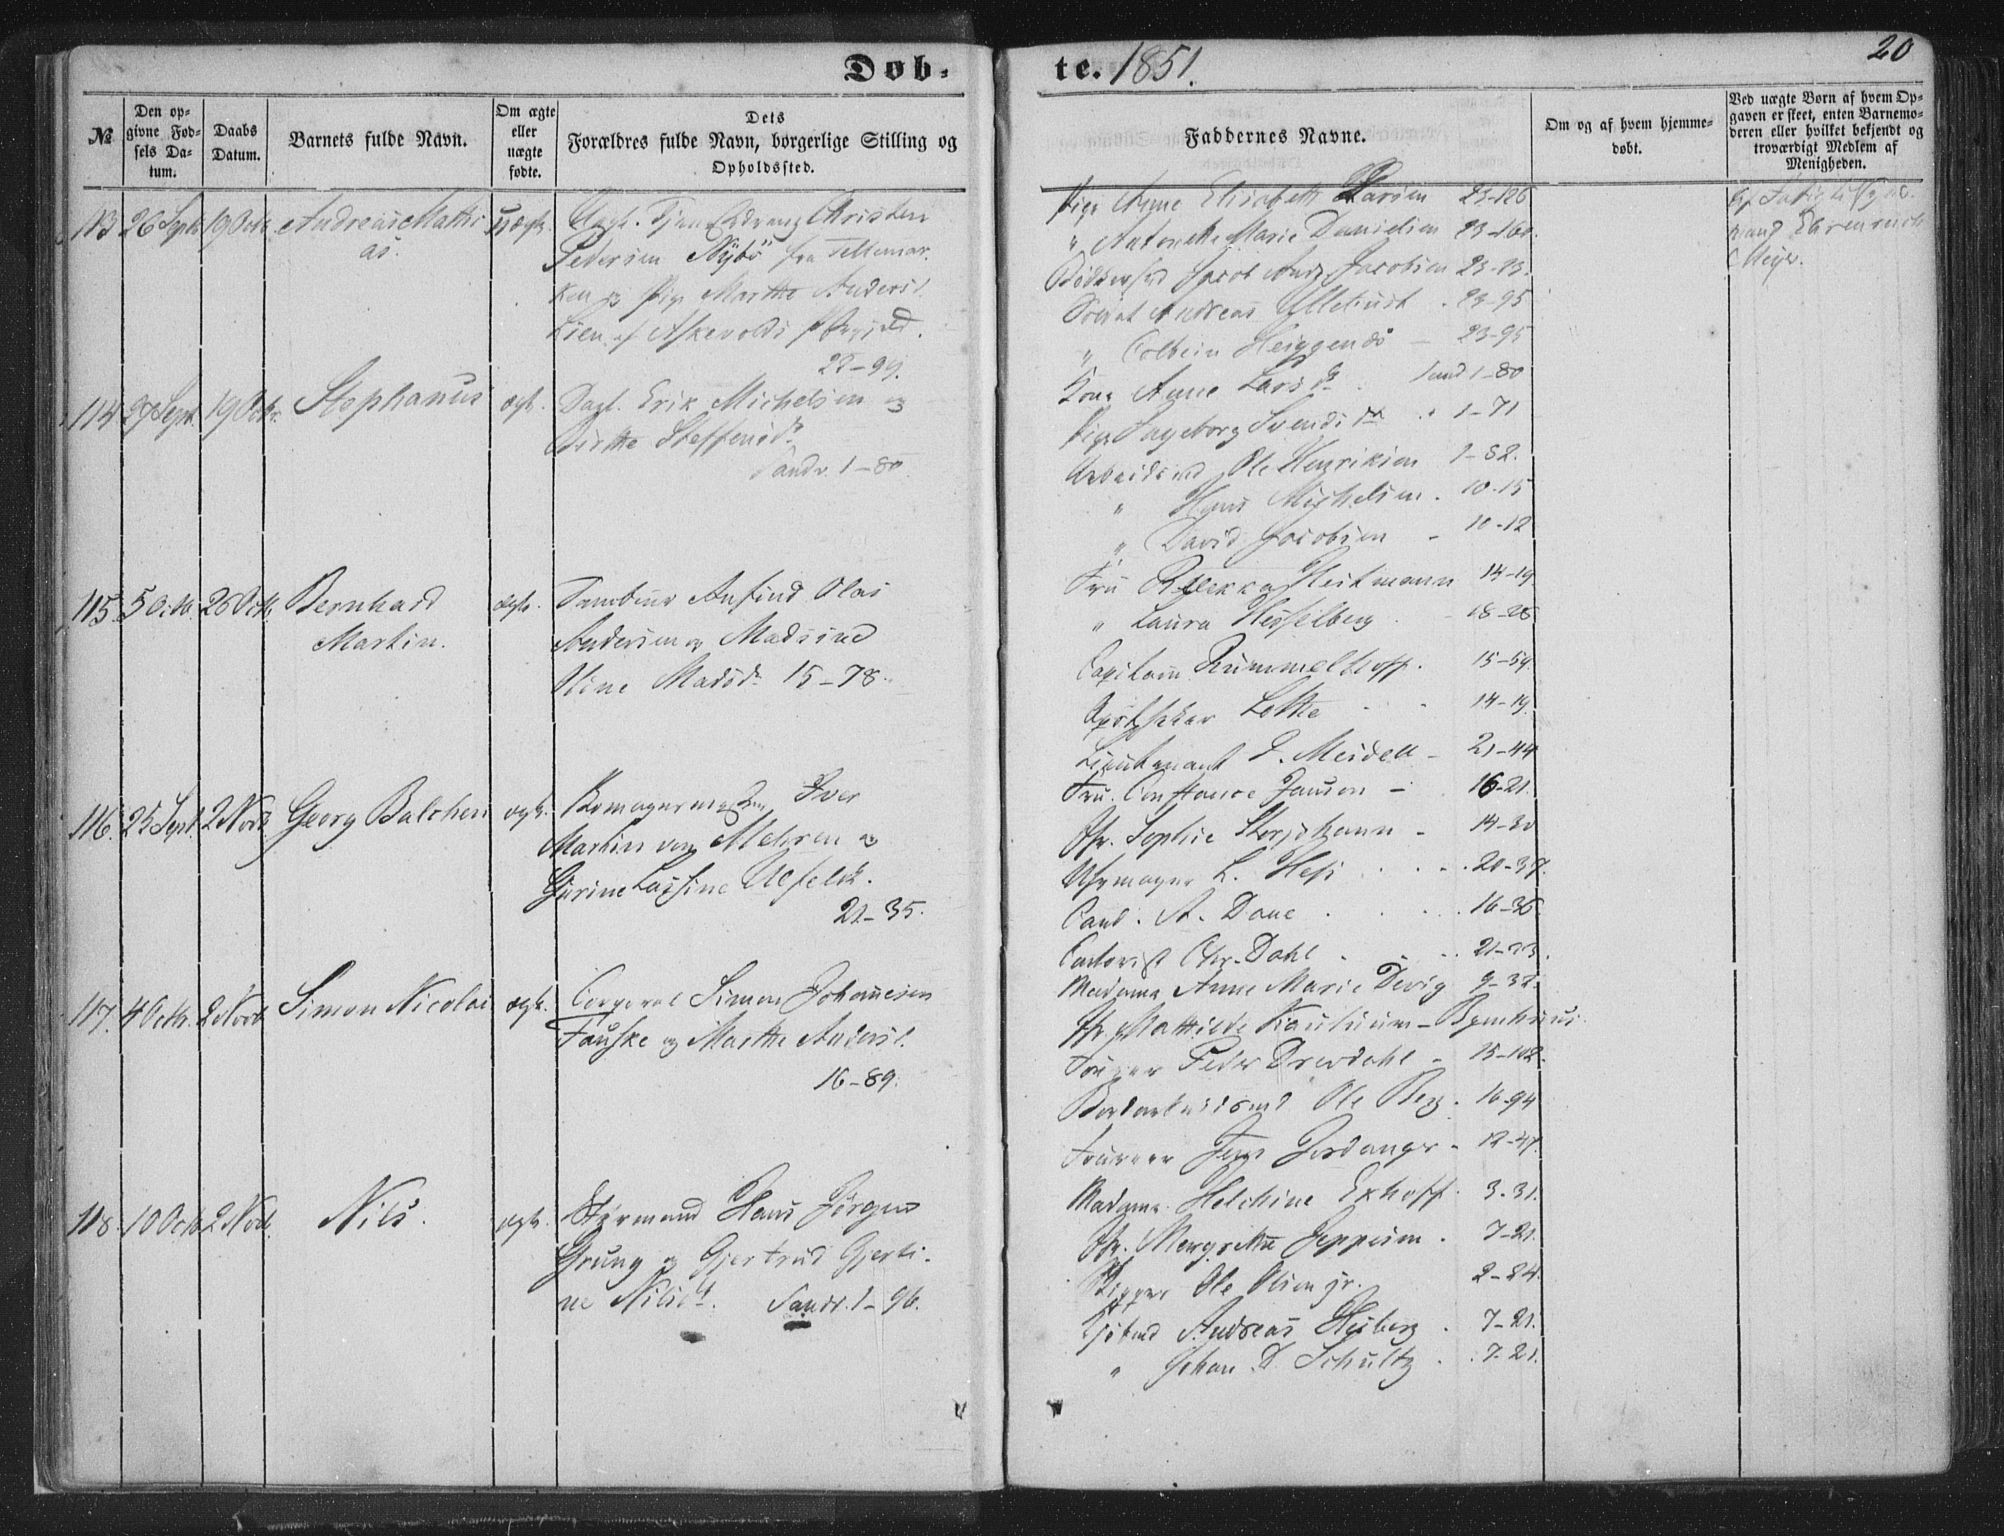 Døb-
№
Den op-
givne Fød-
sels Da-
tum.
Daabs
Datum.
Barnets fulde Navn.
Om ægte
eller
uægte
fødte.
Dets
Forældres fulde Navn, borgerlige Stilling og
Opholdssted.
113 26 Septr 19 Octr. Andreas Mathi
as.
uægt.
Ungk. Christen
Pedersen Nybö fra Tellemar-
ken og Pige Marthe Andersd.
Lien af Askevolds
22-99.
114 27 Sept. 19 Octr. Stephanus ægt. Dagl. Erik Michelsen og
Birthe Steffensdr.
Sandv. 1-80.
115. 5 Octr. 26 Octr. Bernhard ægt. Tambour Anfind Olai
Martin. Andersen og Madsine
Stine Madsdr 15-78.
116. 25 Sept. 2 Novb Georg Balchen ægt. Iver
Martin von Mehren og
Gurine Lassine Ulfeldt.
21-35.
117. 4 Octr. 2 Novb Simon Nicolai ægt. Corporal Simon Johannesen
Fauske og Marthe Andersd.
16-89.
118. 10 Octb 2 Novb. Nils. ægt. Styrmand Hans Jørgen
Grung og Gjertrud Gjerti-
ne Nilsdr. Sandv. 1-96.
te. 1851. 20
Faddernes Navne.
Om og af hvem hjemme-
døbt.
Ved uægte Børn af hvem Op-
gaven er skeet, enten Barnemo-
deren eller hvilket bekjendt og
troværdigt Medlem af
Menigheden.
Pige Anne Elisabeth Larsen 23-126
" Antonette Marie Danielsen 23-160.
Bödkersvd Jacob And. Jacobsen 23-73.
Soldat Andreas 23-95
" Colbein 23-95
Kone Anne Larsdr. Sand 1-80
Pige Ingeborg Svendsdr. 1-71
Arbeidsmd Ole Henriksen 1-82.
" Hans Michelsen. 10-15
" David Jacobsen - 10-12
Fru Rebekka Heitmann 14-19
" Laura Hesselberg. 18-28
Capitain Rummelhoff. 15-59.
Apotheker Lothe 14-19.
Lieutenant D. Meidell - 21-44
Fru. Constance Janson - 16-21.
Jfr. Sophie Storjohann - 14-30
Uhrmager L. Hess 20-37.
Cand. A. Dane 16-36.
Contorist Chr. Dahl 21-33.
Madame Anne Marie Devig 9-32.
Jfr Matthilde
Fourer Peder Drevdahl - 15-102.
Ole Berg. 16-94
Fourer Jordanger - 12-47.
Madame Helchine Exhoff 3-31.
Jfr. Mergrethe Jeppesen. 7-21.
Skipper Ole Olsen jr. 2-24.
Andreas Heiberg. 7-21.
" Johan D. Schultz. 7-21.
Ehrenreich
Meyer.